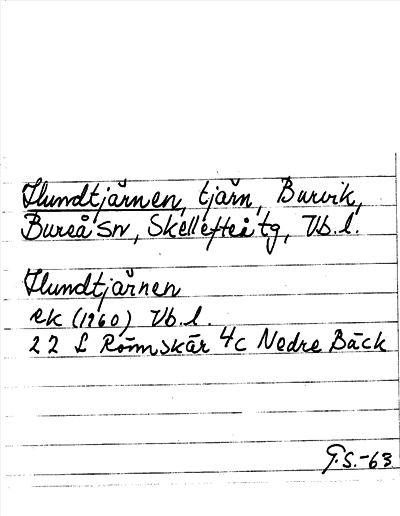 Hundtjärnen, tjärn, Burvik,
Bureå sn, Skellefteå tg, Vb. l.
Hundtjärnen
ek (1960) Vb. l.
22 L Rönnskär 4c Nedre Bäck
G.S.-63